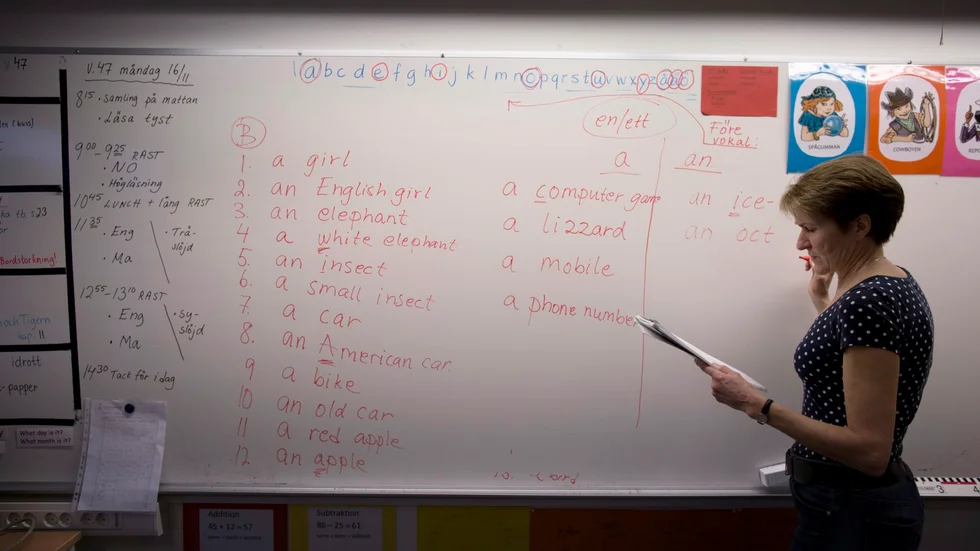 V.47
V.47 måndag 16/11
8 15 • samling på mattan
• Läsa tyst
9 00 – 9 25 RAST
• NO
• Högläsning
10 45 LUNCH + lång RAST
11 35
• Eng
• Trä-
slöjd
• Ma
12 55 – 13 10 RAST
• Eng
• sy-
slöjd
• Ma
14 30 Tack för idag
a b c d e f g h i j k l m n o p q r s t u v w x y z å ä ö
B
1. a girl
2. an English girl
3. an elephant
4 a white elephant
5. an insect
6. a small insect
7. a car
8. an American car.
9 a bike
10 an old car
11 a red apple
12. an apple
a computer game
a lizzard
a mobile
a phone number
en/ett
Före
vokal:
a
an
an ice-
an oct
SPÅGUMMAN
COWBOYEN
Bordstorkning!
och Tigern
kap. 11
idrott
- papper
What day is it?
What month is it?
Addition
45 + 12 = 57
Subtraktion
86 – 25 = 61